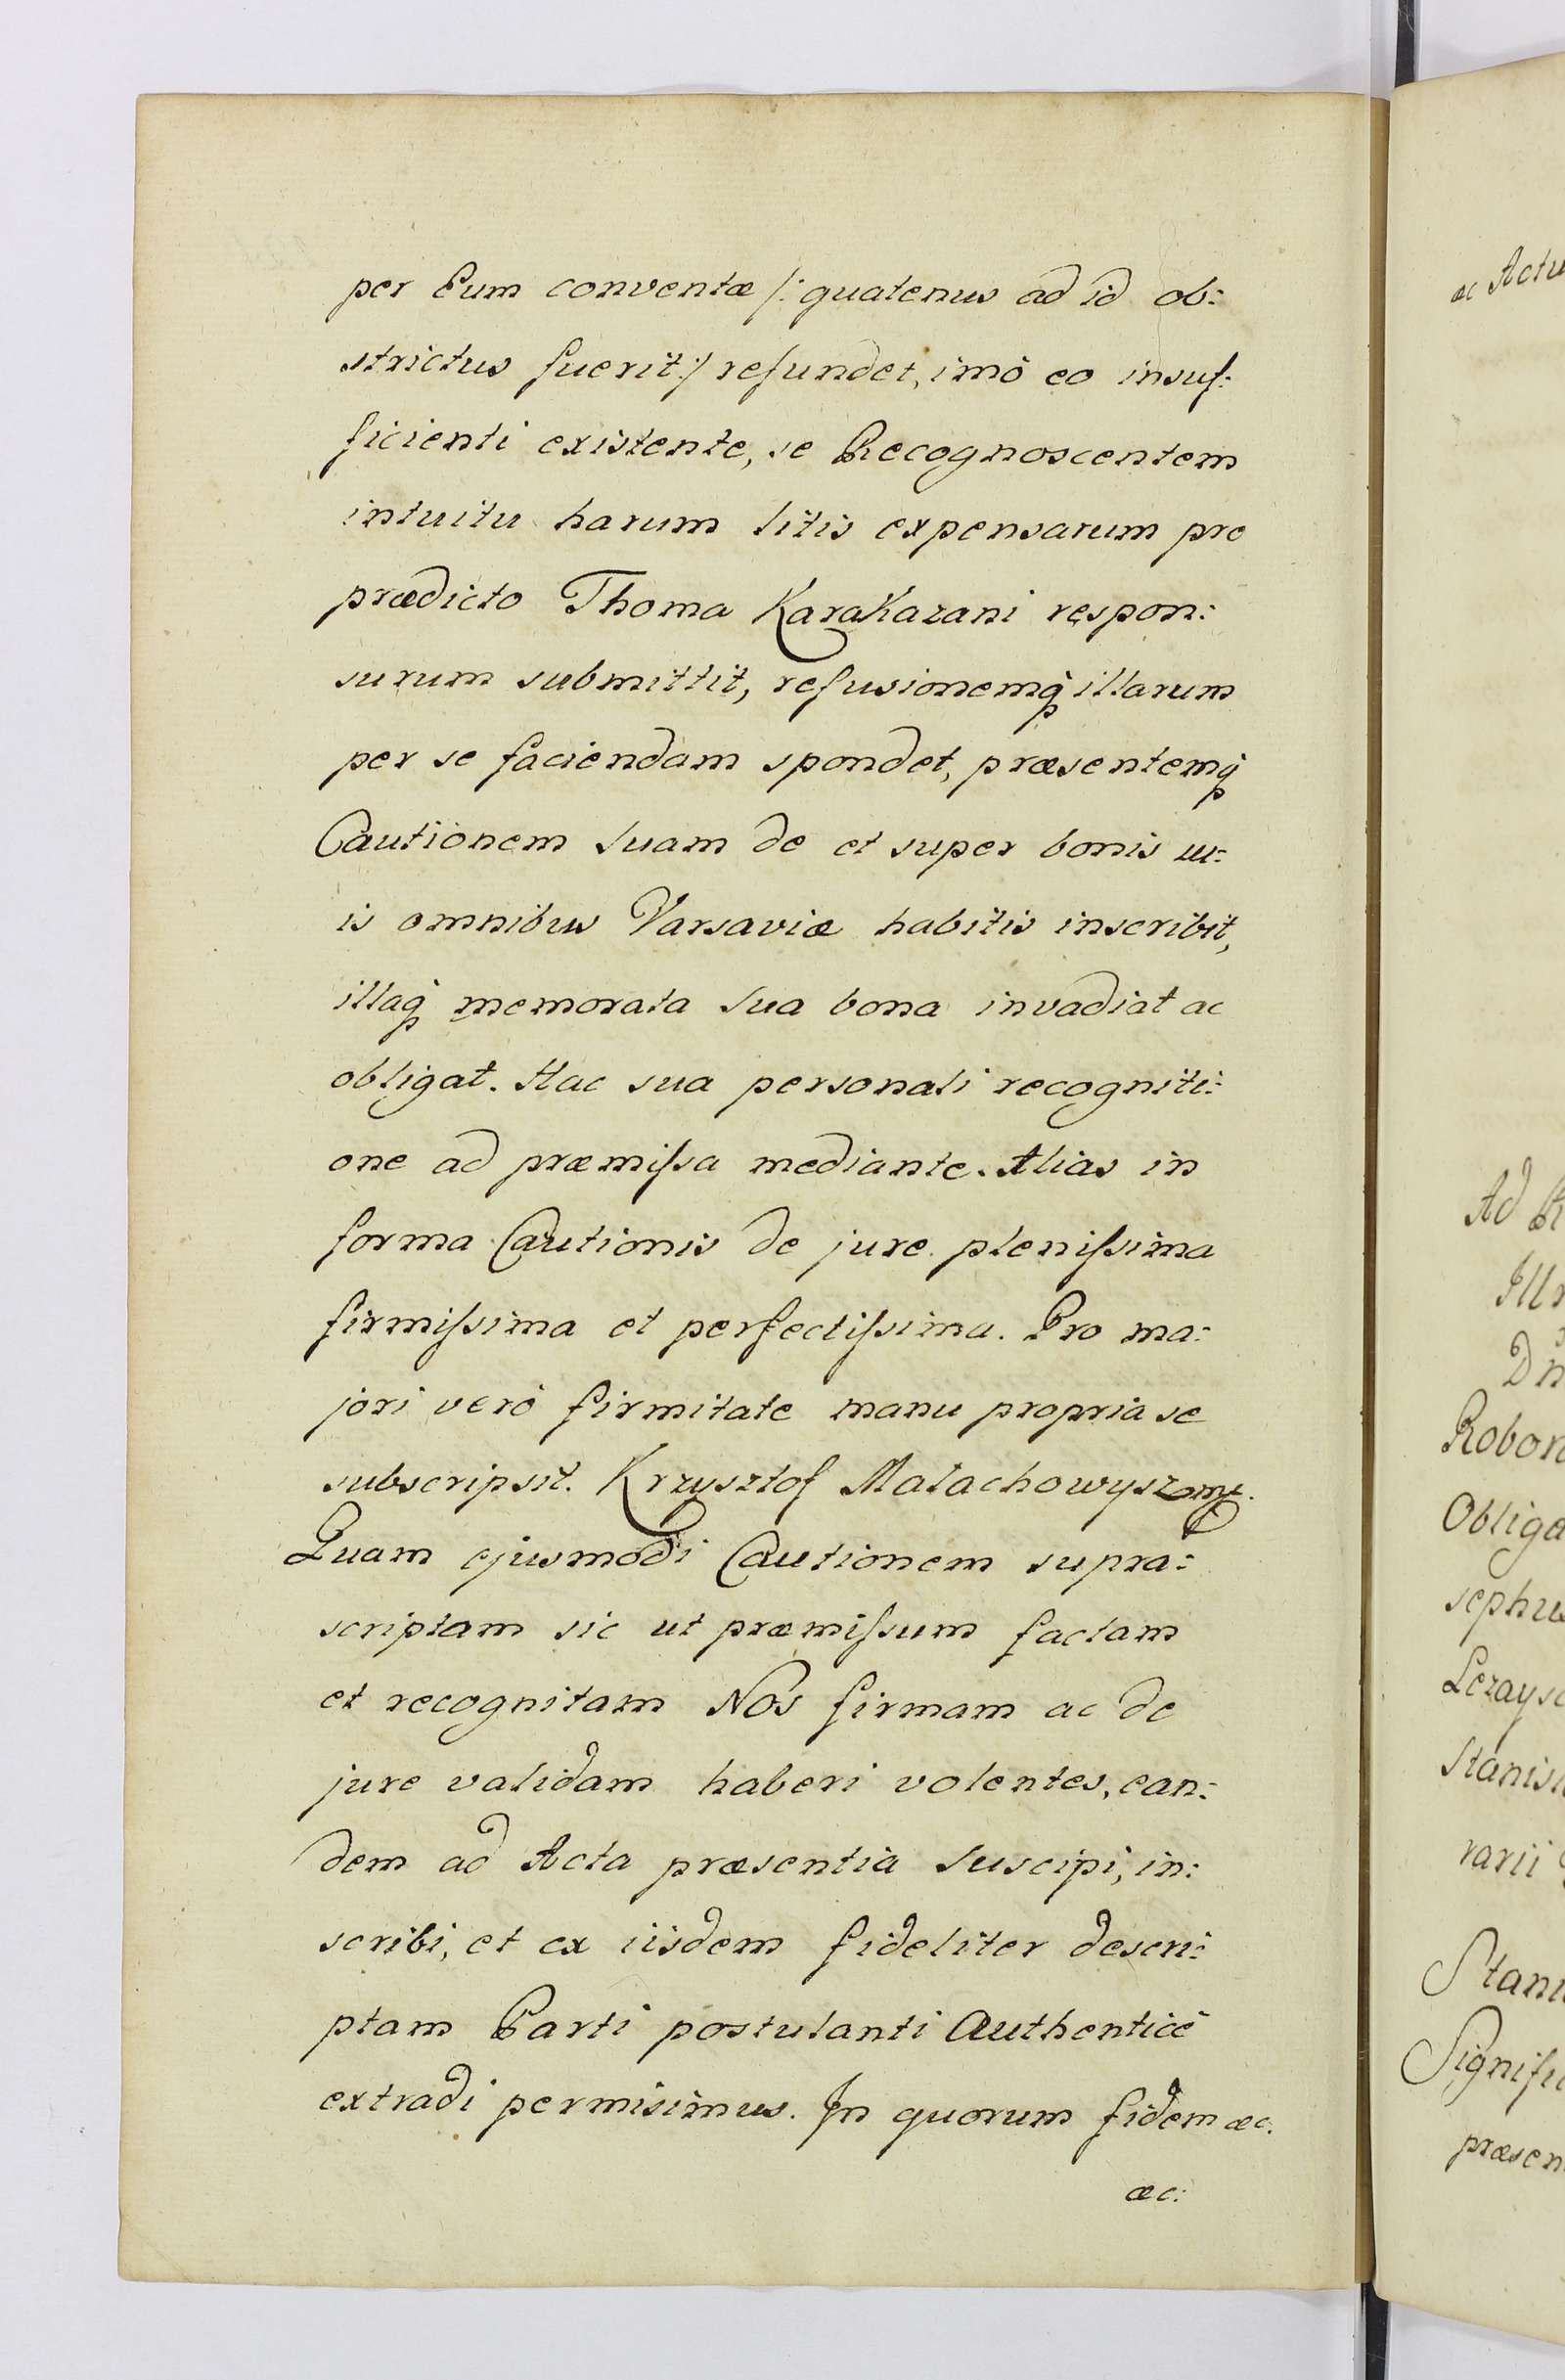 per Eum conventæ /: quatenus ad id ob:
strictus fuerit :/ refundet, imò eo insuf:
ficienti existente, se Recognoscentem
intuitu harum litis expensarum pro
prædicto Thoma KaraKazani respon:
surum submittit, refusionemq̀ illarum
per se faciendam spondet, præsentemq̀
Cautionem suam de et super bonis su:
is omnibus Varsaviæ habitis inscribit,
illaq̀ memorata sua bona invadiat ac
obligat. Hac sua personali recogniti:
one ad præmiſsa mediante. Alias in
forma Cautionis de jure pleniſsima
firmiſsima et perfectiſsima. Pro ma:
jori verò firmitate manu propria se
subscripsit. Krzysztof Malachowy
Quam ejusmodi Cautionem supra:
scriptam sic ut præmiſsum factam
et recognitam Nos firmam ac de
jure validam haberi volentes, ean:
dem ad Acta præsentia suscipi, in:
scribi, et ex iisdem fideliter descri:
ptam Parti postulanti Authenticè
extradi permisimus. In quorum fidem æc.
æc:
ac Actu
Ad R
Illr
Dn
Robor
Obliga
sephus
Lezaysc
Stanis
rarii
Stani
Signifi
præsen